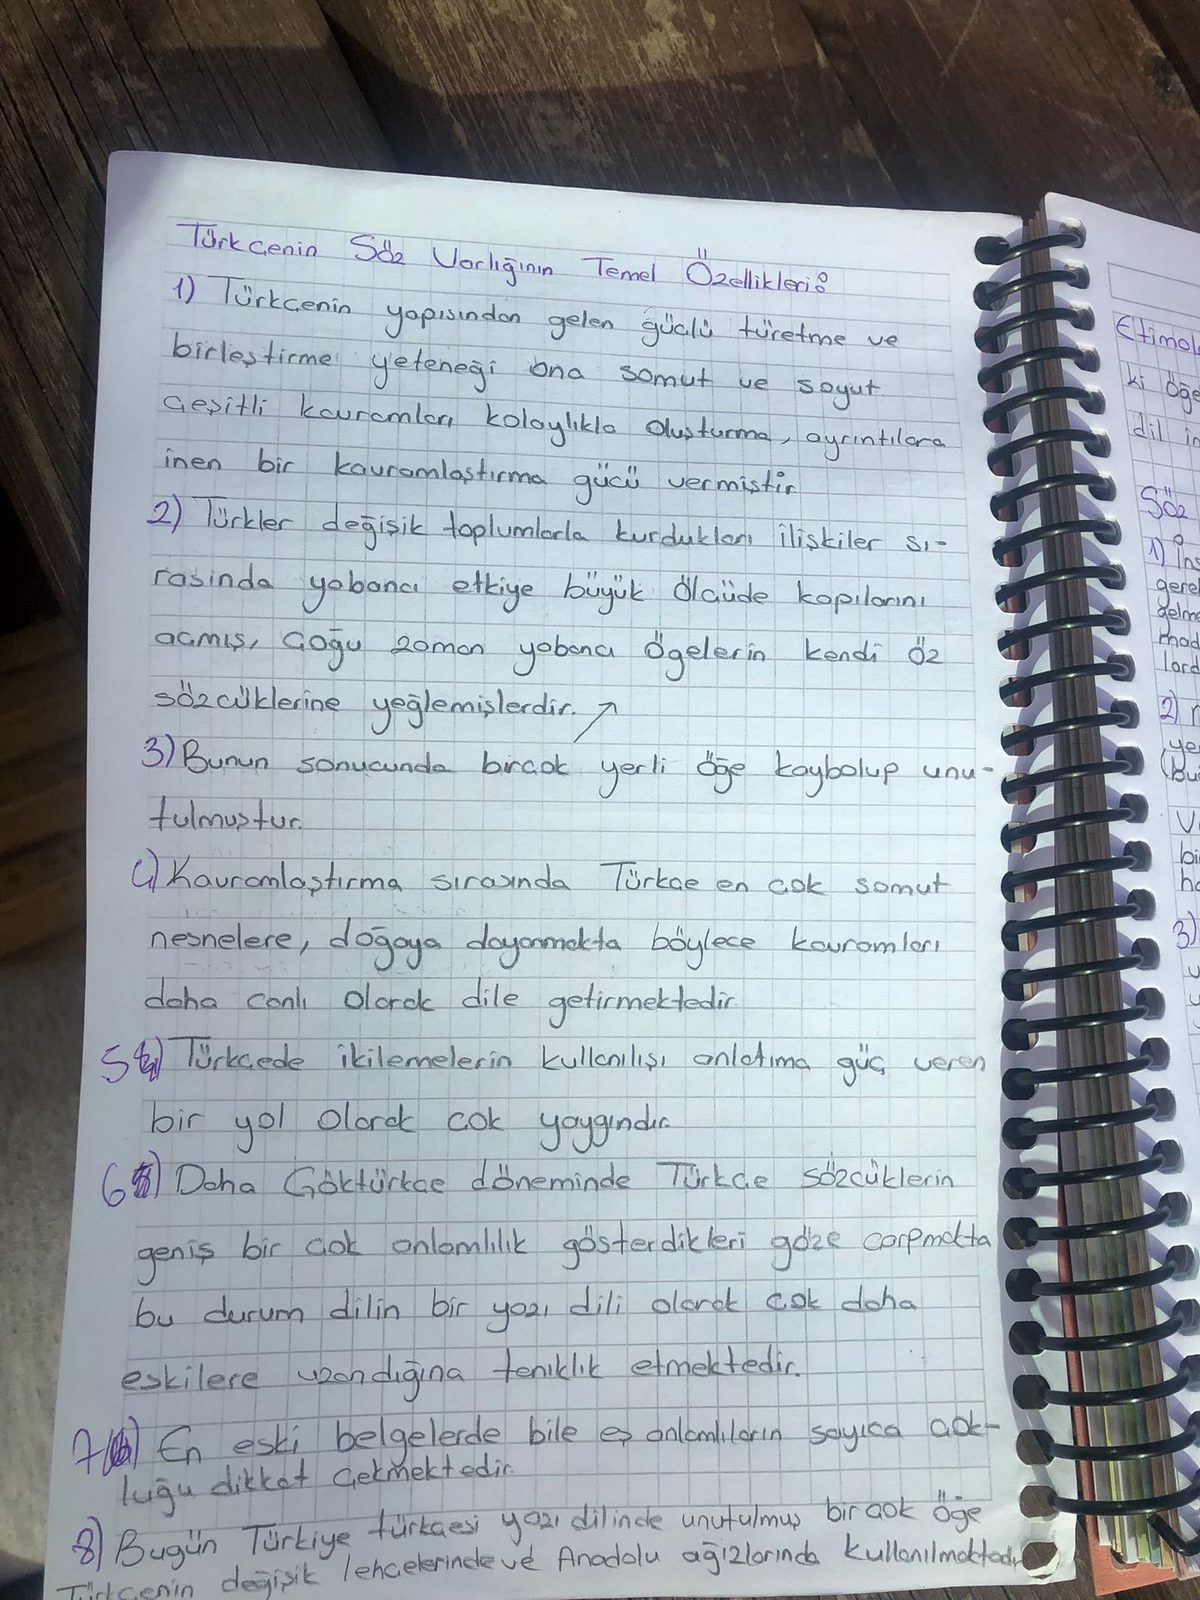 Türkçenin Söz Varlığının Temel Özellikleri:
1) Türkçenin yapısından gelen güçlü türetme ve
birleştirme yeteneği ona somut ve soyut
çeşitli kavramları kolaylıkla oluşturma, ayrıntılara
inen bir kavramlaştırma gücü vermiştir.
2) Türkler değişik toplumlarla kurdukları ilişkiler sı-
rasında yabancı etkiye büyük ölçüde kapılarını
açmış, çoğu zaman yabancı ögelerin kendi öz
sözcüklerine yeğlemişlerdir.
3) Bunun sonucunda birçok yerli öğe kaybolup unu-
tulmuştur.
4) Kavramlaştırma sırasında Türkçe en çok somut
nesnelere, doğaya dayanmakta böylece kavramları
daha canlı olarak dile getirmektedir.
5) Türkçede ikilemelerin kullanılışı anlatıma güç veren
bir yol olarak çok yaygındır.
6) Daha Göktürkçe döneminde Türkçe sözcüklerin
geniş bir çok anlamlılık gösterdikleri göze çarpmakta
bu durum dilin bir yazı dili olarak çok daha
eskilere uzandığına tanıklık etmektedir.
7) En eski belgelerde bile eş anlamlıların sayıca çok-
luğu dikkat çekmektedir.
8) Bugün Türkiye türkçesi yazı dilinde unutulmuş birçok öğe
Türkçenin değişik lehçelerinde ve Anadolu ağızlarında kullanılmaktadır
Etimol
ki öğe
dil in
Söz
1) İns
gerel
gelme
mad
lard
2)
ye
(bu
V
bi
ha
3)